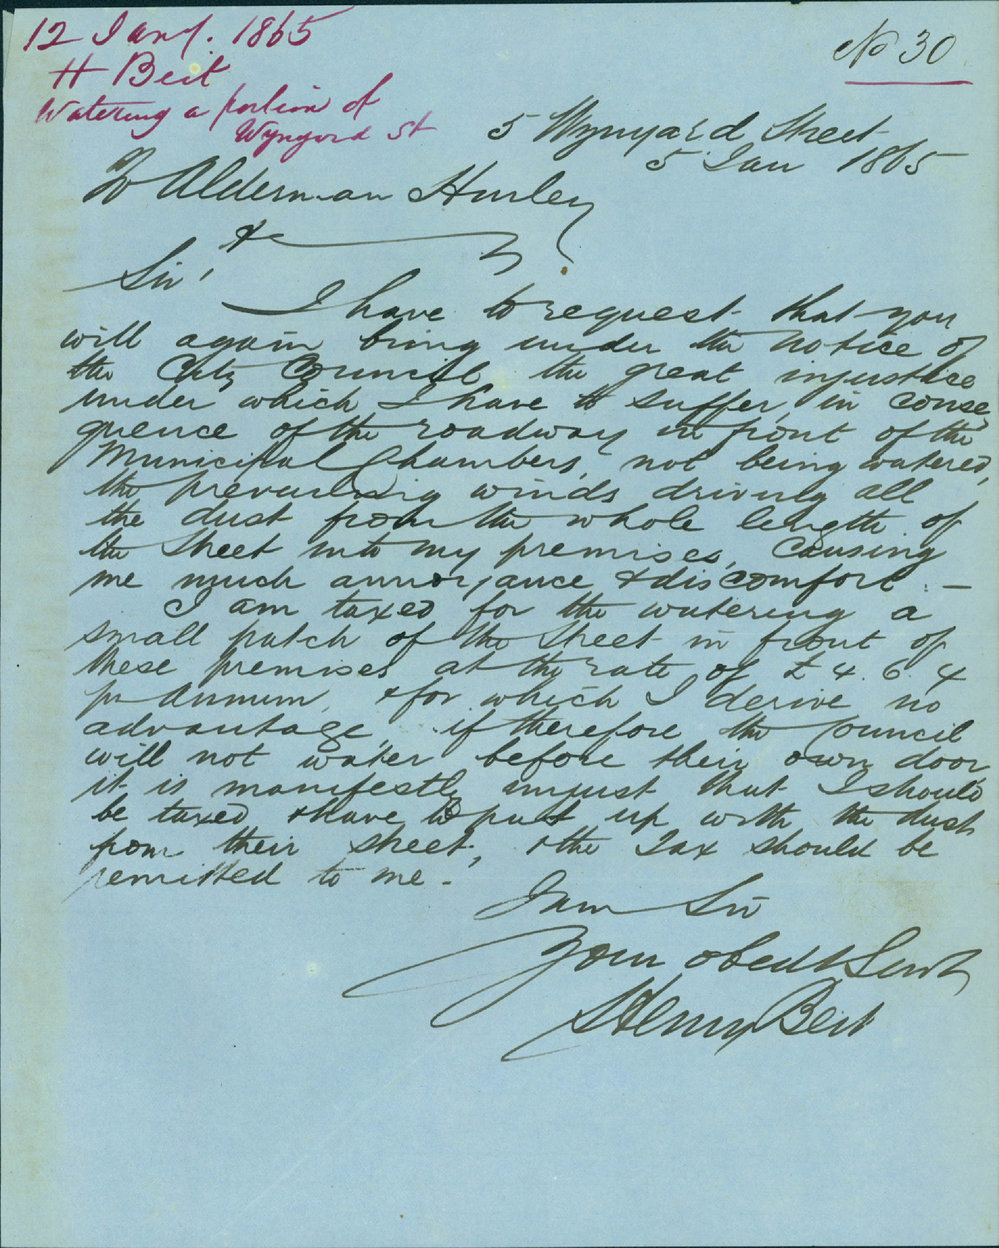 12 Jany. 1865
H Beit
Watering a portion of
Wynyard St
No 30
5 Wynyard Street
5 Jan 1865
To Alderman Hurley
&c
Sir,
I have to request that you
will again bring under the notice of
the City Council, the great injustice
under which I have to suffer, in conse
quence of the roadway in front of the
Municipal Chambers, not being watered,
the prevailing winds driving all
the dust from the whole length of
the Street into my premises, causing
me much annoyance & discomfort. —
I am taxed for the watering a
small patch of the Street in front of
these premises at the rate of £4. 6. 4
pr Annum, & for which I derive no
advantage, if therefore the Council
will not water before their own door
it is manifestly unjust that I should
be taxed & have to put up with the dust
from their street, & the Tax should be
remitted to me. -
I am Sir
Your obedt Servt
Henry Beit